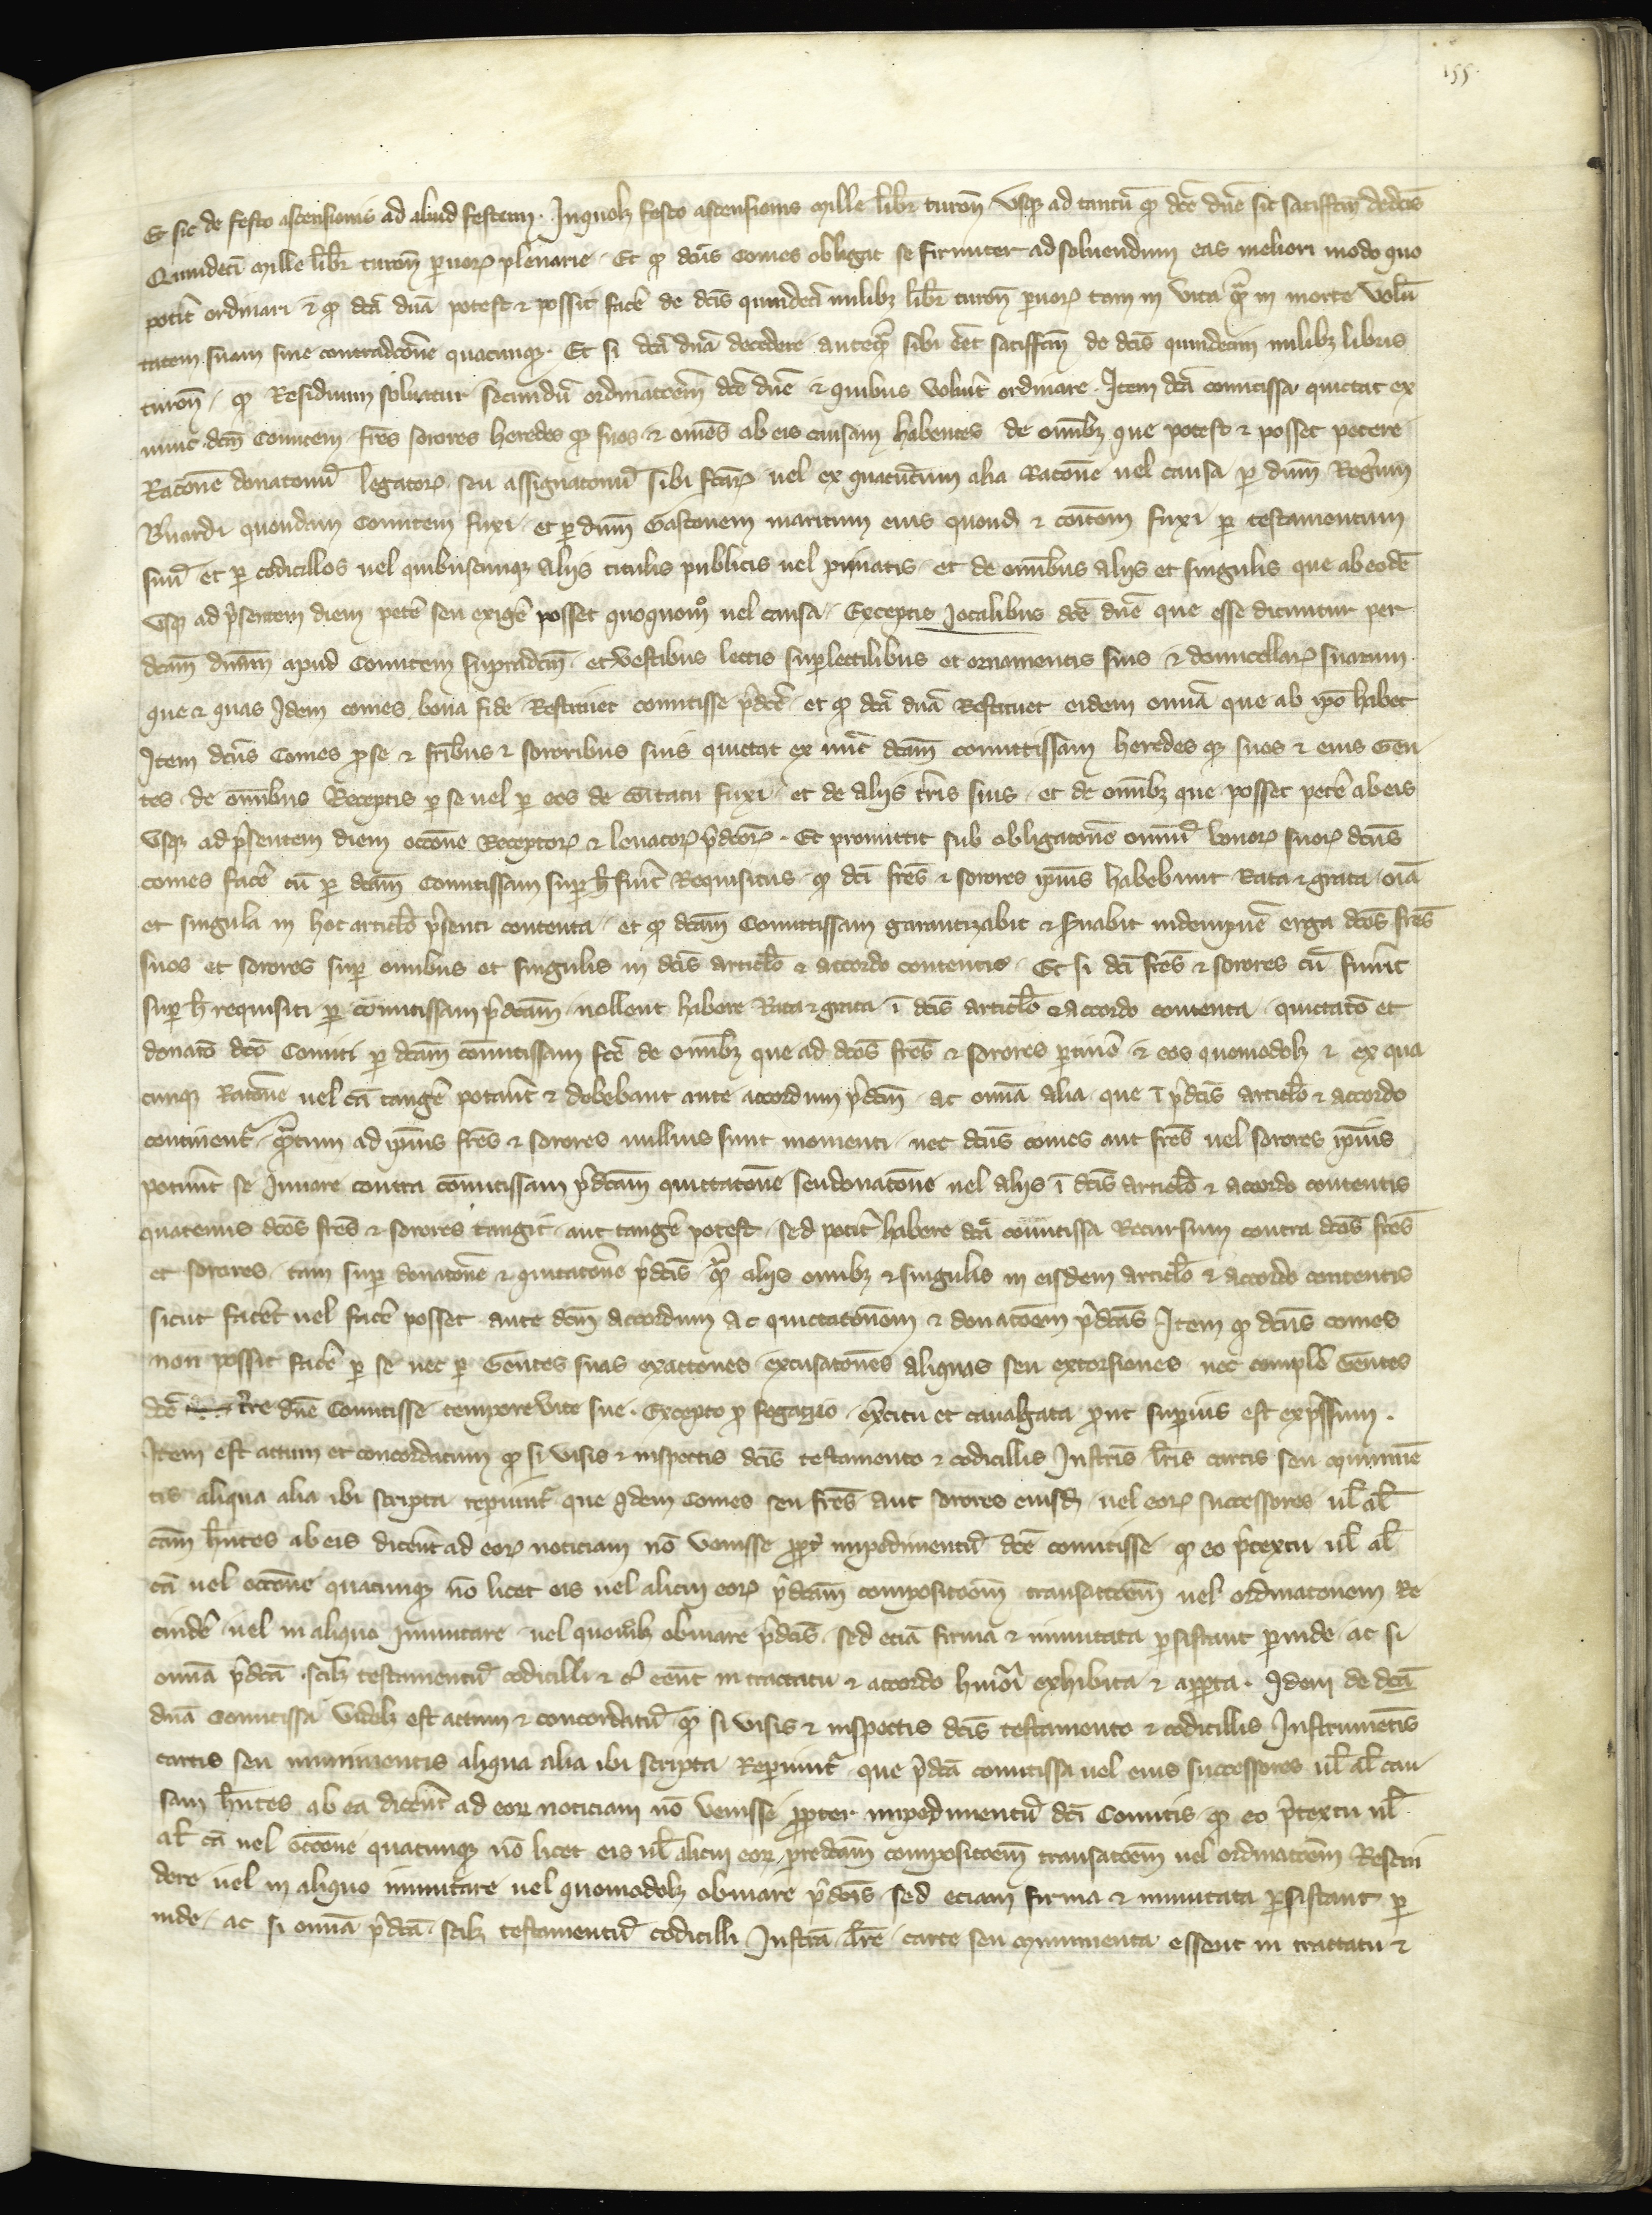 155.
Et sic de festo ascensionis ad aliud festum. Inquolz festo ascensionis mille libr turoñ Usqz ad tantũ qd dce dne sit satisfcm de dcis
Quindeci mille libr turoñ paruorꝝ plenarie. Et qd dcus Comes obligat se firmiter ad soluendum eas meliori modo quo
potit ordinari & qd dcã dnã potest & possit facẽ de dcis quindeci milibz libr turoñ paruorꝝ tam in vita qȝ in morte volũ
tatem suam sine contradcõne quacunqz. Et si dcã dnã decederet anteqȝ sibi eẽt satisfcm de dcis quindecim milibz libris
turoñ, qd Residuum soluatur secundũ ordinacõem dce dne & quibus voluit ordinare. Item dcã comitissa quictat ex
nunc dcm Comitem, fres sorores heredes qȝ suos & omes ab eis causam habentes de omibz que potest & posset petere
Racõne donatonũ legatorꝝ seu assignatonũ sibi fcarꝝ uel ex quacunum alia Racõne uel causa p dnm Rogerium
Bñardi quondam Comitem fuxi, et per dnm Gastonem maritum eius quond & coitem fuxi per testamentum
suũ et p codicillos uel quibuscunqz alijs titulis publicis uel priuatis, et de omibus alijs et singulis que ab eodẽ
Usqz ad p̃sentem diem petẽ seu exigẽ posset quoquomº uel causa. Exceptis Jocalibus dce dne que esse dicuntur per
dcam dnam apud Comitem supradcm, et vestibus lectis suplectilibus et ornamentis suis & domicellarꝝ suarum.
que & quas Idem comes bona fide Restituet comitisse p̃dce, et qd dcã dnã Restituet eidem omia que ab ipo habet
Item dcus Comes p se & fribus & sororibus suis quictat ex nũc dcam comitissam heredes qȝ suos & eius Gen
tes, de omibus Receptis p se uel p eos de coitatu fuxi, et de alijs tris suis, et de omibz que posset petẽ ab eis
Usqz ad p̃sentem diem occõne Receptorꝝ & leuatorꝝ p̃dcorꝝ. Et promittit sub obligatone omiũ bonorꝝ suorꝝ dcus
comes facẽ cũ p dcam Comitissam sup h fuit Requisitus, qd dci fres & sorores ipius habebunt Rata & grata oia
et singula in hoc articlo p̃senti contenta, et qd dcam Comitissam garantizabit & s̃uabit indempne erga dcos fres
suos et sorores sup omibus et singulis in dcis articlo & accordo contentis. Et si dci fres & sorores cũ fuint
sup h requisiti p comitissam p̃dcam, nollent habere Rata & grata ĩ dcis articlo & accordo contenta, quictato et
donato dco Comiti p dcam comitissam fce de omibz que ad dcos fres & sorores ptinẽ & eos quomodolz & ex qua
cunqz Racõne uel cã tangẽ potant & debebant ante accordum p̃dcm ac omia alia que ĩ p̃dcis articlo & accordo
continent, qȝtum ad ipius fres & sorores nullius sunt momenti, nec dcus comes aut fres uel sorores ipius
potunt se Juuare contra comitissam p̃dcam quictatone seu donatone uel alijs ĩ dcis articlo & accordo contentis
quatenus dcos fres & sorores tangit aut tangẽ potest, sed potit habere dcã comitissa Recursum contra dcos fres
et sorores, tam sup donatone & quictatone p̃dcis qȝ alijs omibz & singulis in eisdem articlo & accordo contentis
sicut facẽt uel facẽ posset ante dcm accordum ac quictatonem & donacoem p̃dcas. Item qd dcus comes
non possit facẽ p se nec p Gentes suas exactiones excusatones aliquas seu extorsiones nec complẽ Gentes
dce tre dne Comitisse tempore vite sue. Excepto p fogagio ex̃citu et caualgata p̃ut supius est exp̃ssum.
Item est actum et concordatum qd si visis & inspectis dcis testamento & codicillis Instris lris cartis seu munime
tis aliqua alia ibi scripta repiunt que qdem Comes seu fres aut sorores eiusd uel eorꝝ successores ul al
cam hntes ab eis dicent ad eorꝝ noticiam nõ venisse ppt impedimentũ dce comitisse, qd eo p̃textu ul al
cã uel occõne quacunqz nõ licet eis uel alicui eorꝝ p̃dcam compositoem transactoem uel ordinatonem Re
cindẽ uel in aliquo Imutare uel quomolz obuiare p̃dcis, sed eciã firma & imutata psistant pinde ac si
omia p̃dcã, scilz testamentũ codicilli & c̃ eent in tractatu & accordo hmoi exhibita & appta. Idem de dcã
dnã Comitissa videlz est actum & concordatũ qd si visis & inspectis dcis testamento & codicillis Instrumentis
cartis seu munimentis aliqua alia ibi scripta Repiunt que p̃dcã comitissa uel eius successores ul al cau
sam hntes ab ea dicent ad eorꝝ noticiam nõ venisse ppter impedimentũ dci Comitis, qd eo p̃textu ul
al cã uel occõne quacunqz nõ licet eis ul alicui eorꝝ predcam compositoem transactoem uel ordinacoem Resciń
dere uel in aliquo imutare uel quomodolz obuiare p̃dcis, sed eciam firma & imutata psistant p
inde, ac si omia p̃dcã, scilz testamentũ codicilli Instra lre carte seu munimenta essent in tractatu &